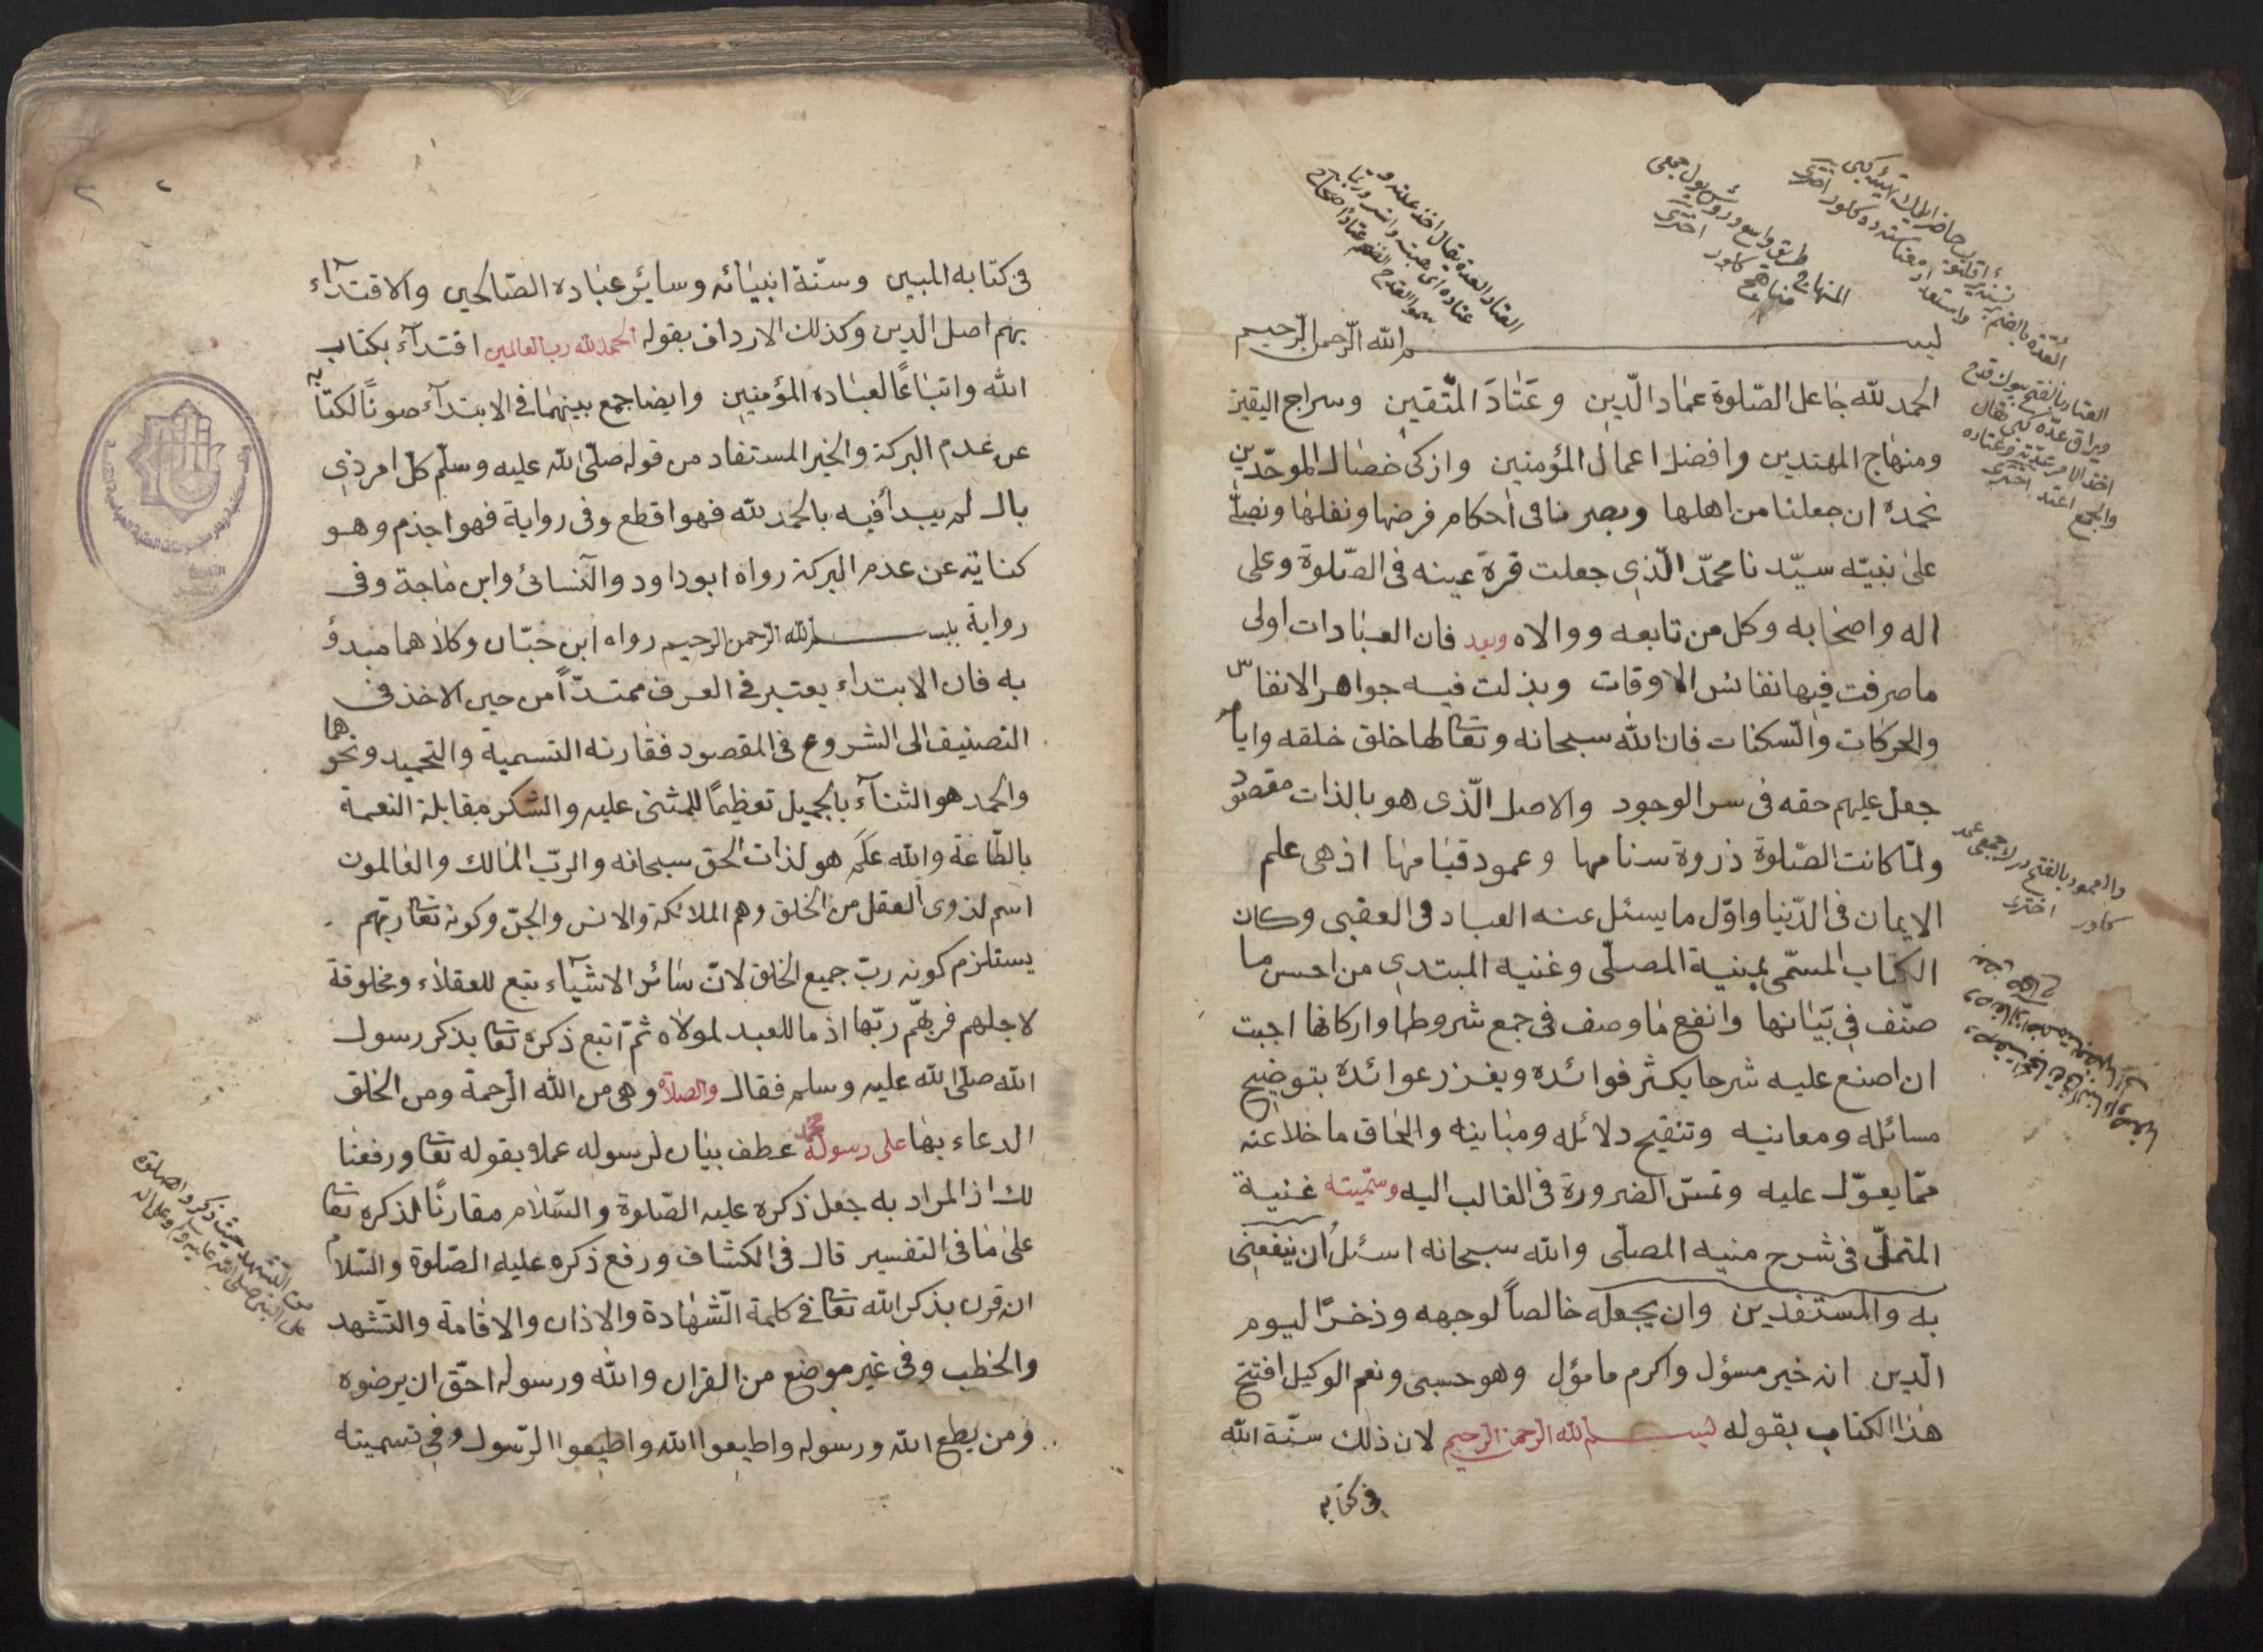 بسم الله الرحمن الرحيم
الحمد لله جاعل الصّلوة عماد الدّين وعَتادَ المتّقين وسراج اليقين
ومنهاج المهتدين وافضل اعمال المؤمنين وازكى خصال الموحّدين
نحمده ان جعلنا من اهلها وبصرنا فى احكام فرضها ونفلها ونصلّى
على نبيّه سيّدنا محمّد الّذى جعلت قرة عينه فى الصّلوة وعلى
اله واصحابه وكل من تابعه ووالاه وبعد فان العبادات اولى
ما صرفت فيها نفائس الاوقات وبذلت فيه جواهر الانفاس
والحركات والسّكنات فان الله سبحانه وتعا لها خلق خلقه واياها
جعل عليهم حقه فى سر الوجود والاصل الّذى هو بالذات مقصود
ولمّا كانت الصّلوة ذروة سنامها وعمود قيامها اذ هى علم
الايمان فى الدّنيا واوّل ما يسئل عنه العباد فى العقبى وكان
الكتاب المسمّى بمنية المصلّى وغنية المبتدى من احسن ما
صنّف فى بيانها وانفع ما وصف فى جمع شروطها واركانها اجبت
ان اصنع عليه شرحا يكثر فوائده ويغزر عوائده بتوضيح
مسائله ومعانيه وتنقيح دلائله ومبانيه والحاق ما خلا عنه
ممّا يعوّل عليه وتمسّ الضرورة فى الغالب اليه وسمّيته غنية
المتملّى فى شرح منية المصلّى والله سبحانه اسئل ان ينفعنى
به والمستفدين وان يجعله خالصاً لوجهه وذخرًا ليوم
الدّين انه خير مسؤل واكرم مامؤل وهو حسبى ونعم الوكيل افتتح
هذا الكتاب بقوله بسم الله الرحمن الرحيم لان ذلك سنّة الله
فى كتابه
العمود بالفتح
اخترى
المنهاج
طريق واسع
اخترى
فى كتابه المبين وسنّة انبيائه وسائر عباده الصّالحين والاقتدآء
بهم اصل الدّين وكذلك الارداف بقوله الحمد لله رب العالمين اقتدآء بكتاب
الله واتباعًا لعباده المؤمنين وايضا جمع بينهما فى الابتدآء صونًا لكتابه
عن عدم البركة والخير المستفاد من قوله صلّى الله عليه وسلّم كلّ امر ذى
بال لم يبدأ فيه بالحمد لله فهو اقطع وفى رواية فهو اجذم وهو
كناية عن عدم البركة رواه ابو داود والنّسائى وابن ماجة وفى
رواية ببسم الله الرحمن الرحيم رواه ابن حبّان وكلاهما مبدؤ
به فان الابتداء يعتبر فى العرف ممتدّاً من حين الاخذ فى
التصنيف الى الشروع فى المقصود فقارنه التسمية والتحميد ونحوهما
والحمد هو الثنآء بالجميل تعظيمًا للمثنى عليه والشكر مقابلة النعمة
بالطّاعة والله علَم هو لذات الحق سبحانه والربّ المالك والعالمون
اسم لذوى العقل من الخلق وهم الملائكة والانس والجنّ وكونه تعا ربّهم
يستلزم كونه ربّ جميع الخلق لانّ سائر الاشيآء تبع للعقلاء ومخلوقة
لاجلهم فربّهم ربّها اذ ما للعبد لمولاه ثمّ اتبع ذكره تعا بذكر رسول
الله صلّى الله عليه وسلم فقال والصلاة وهى من الله الرّحمة ومن الخلق
الدعاء بها على رسوله محمد عطف بيان لرسوله عملا بقوله تعا ورفعنا
لك اذ المراد به جعل ذكره عليه الصّلوة والسّلام مقارنًا لذكره تعا
على ما فى التفسير قال فى الكشاف ورفع ذكره عليه الصّلوة والسّلام
ان قرن بذكر الله تعا فى كلمة الشّهادة والاذان والاقامة والتّشهد
والخطب وفى غير موضع من القران والله ورسوله احّق ان يرضوه
ومن يطع الله ورسوله واطيعوا الله واطيعوا الرّسول وفى تسميته